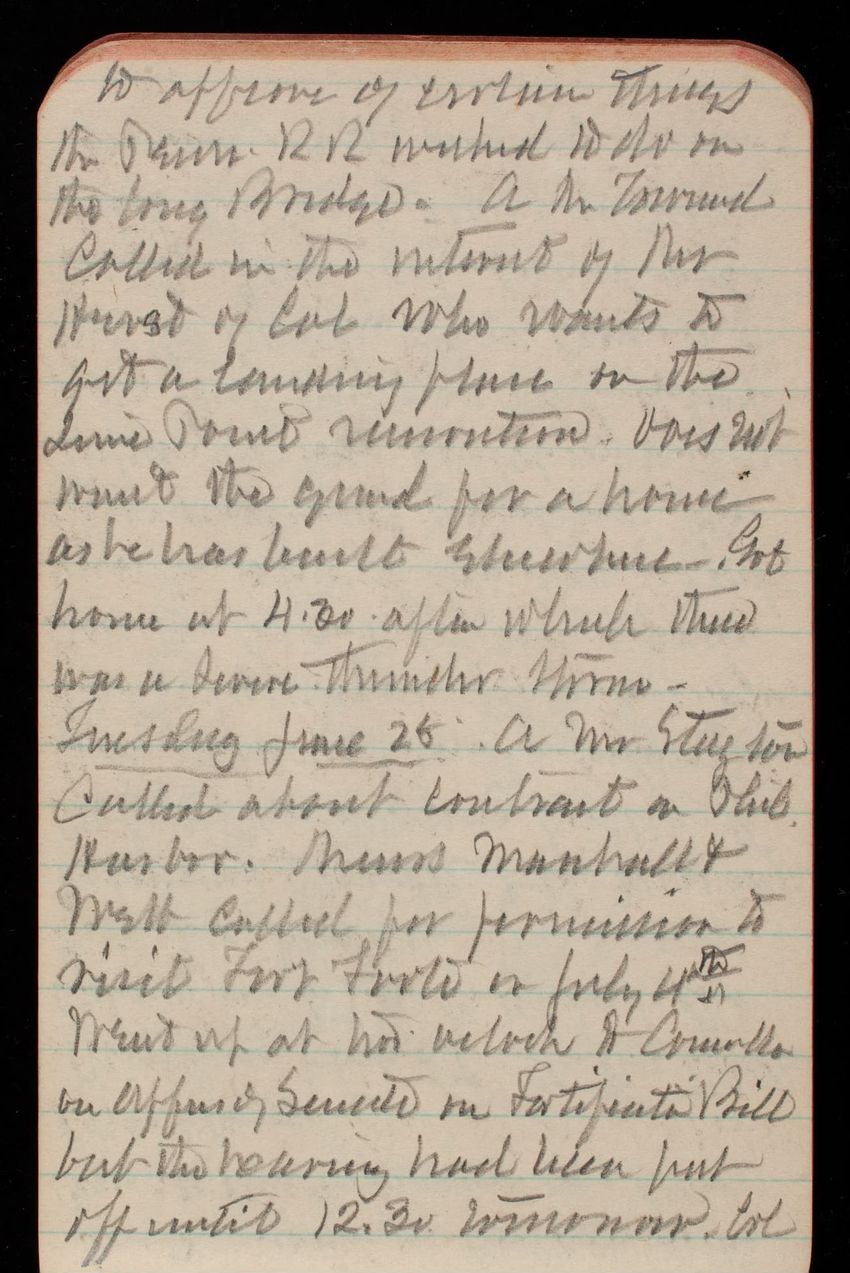 to approve of certain things
the Penn. R R wished to do on
the long Bridge. A Mr Townsend
Called in the interest of Mr
Hearst of Cal who wants to
get a landing place on the
Lime Point reservation. Does not
want the ground for a home
as he has built elsewhere - Got
home at 4.30 after which there
was a severe thunder storm -
Tuesday June 25. A Mr
Called about contract on Phil
Harbor. Messrs Marshall &
Webb called for permission to
visit Fort Foote on July 4th
Went up at two oclock to Comttee
on Appns of Senate on Fortificatn Bill
but the hearing had been put
off until 12.30 tomorrow. Col